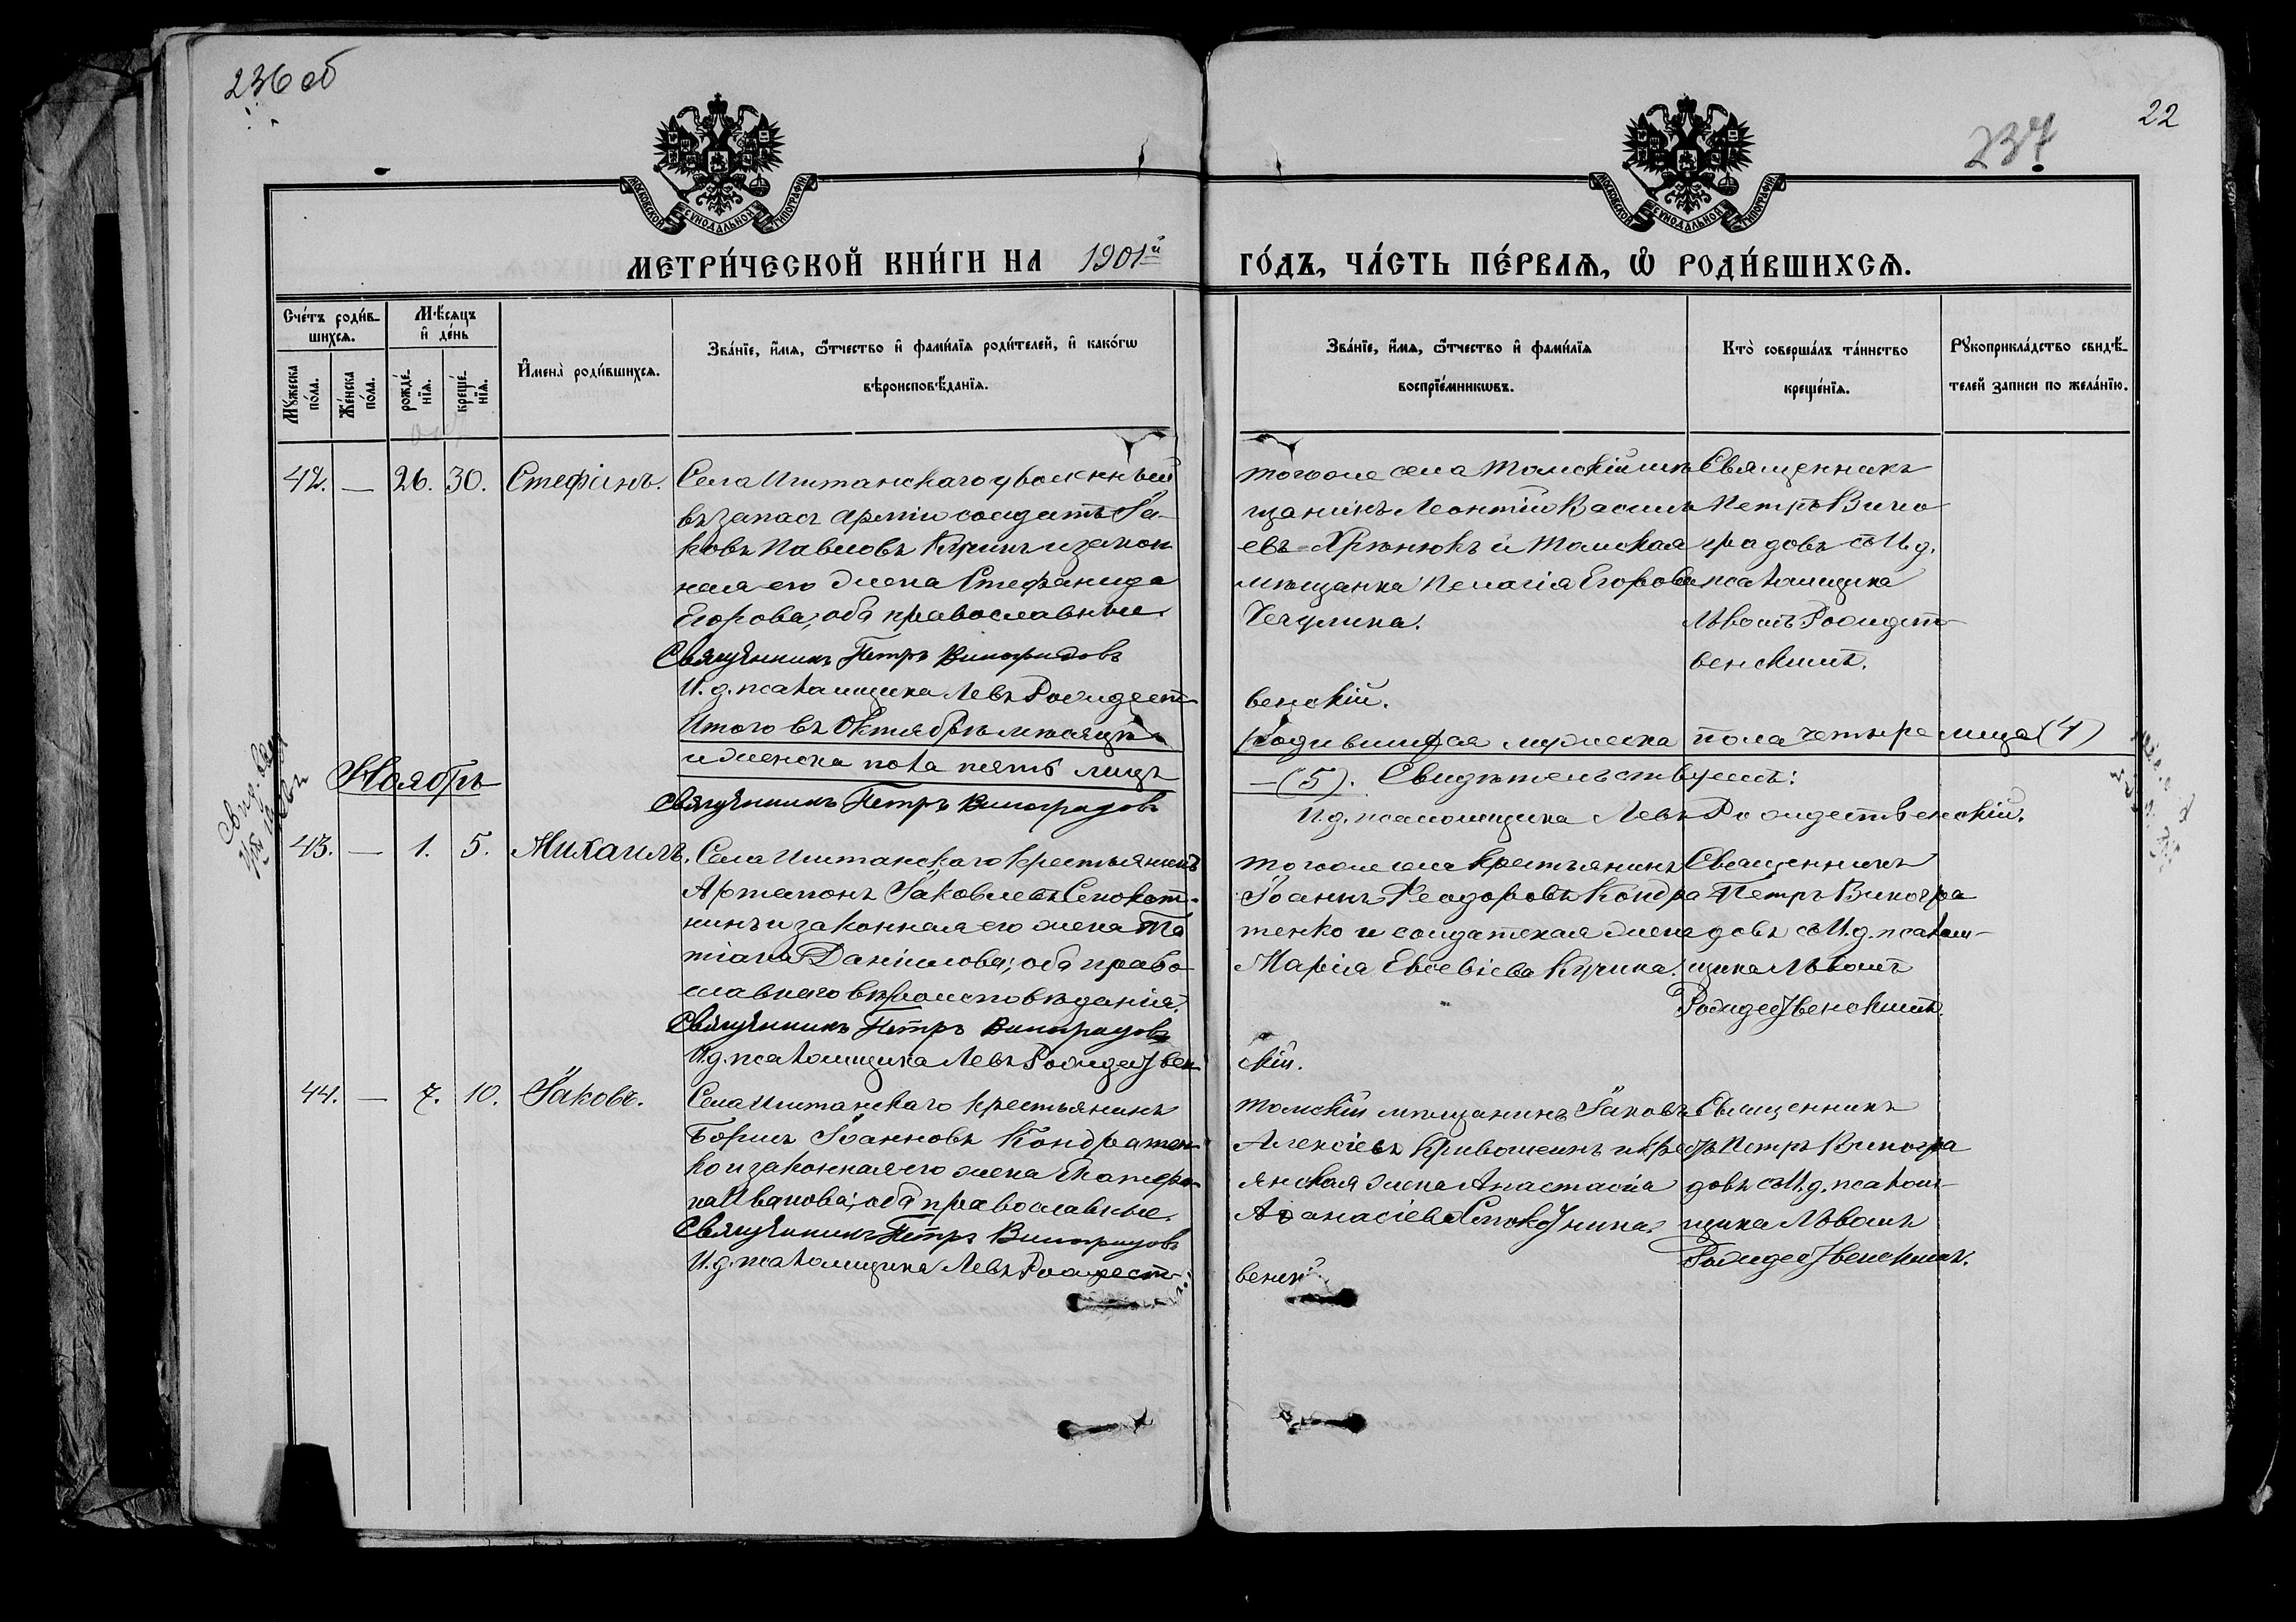 236 об
22
237
МЕТРИ́ЧЕСКОЙ КНИ́ГИ НА 1901й
ГО́ДЪ, ЧА́СТЬ ПЕ́РВАЯ, Ѡ РОДИ́ВШИХСЯ.
Сче́тъ роди́в-
шихся.
Мѣсяцъ
и де́нь
Му́жеска по́ла.
Же́нска по́ла.
рожде́-
нїя.
креще́-
нїя.
Имена̀ роди́вшихся.
Зва́нїе, и́мя, ѻ́тчество и фами́лїя роди́телей, и како́гѡ
вѣроисповѣ́данїя.
Зва́нїе, и́мя, ѻ́тчество и фами́лїя
воспрїе́мникѡвъ.
Кто̀ соверша́лъ та́инство
креще́нїя.
Рꙋкоприкла́дство свидѣ́-
телей записи по жела́нїю.
42. — 26. 30. Стефанъ.
Села Иштанскаго уволенный
въ запасъ арміи солдатъ Іа-
ковъ Павловъ Кучинъ и закон
ная его жена Стефанида
Егорова, оба православные.
Священникъ Петръ Виноградовъ
И. д. псаломщика Левъ Рождест-
венскій.
тогоже села Томскій мѣ
щанинъ Леонтій Василь
евъ Хрѣнюкъ и Томская
мѣщанка Пелагія Егорова
Чечулина.
Священникъ
Петръ Вино
градовъ съ И. д.
псаломщика
Львомъ Рождест-
венскимъ.
Итого въ Октябрѣ мѣсяцѣ
родившихся мужеска пола четыре лица (4)
и женска пола пять лицъ
— (5). Свидѣтельствуемъ:
Священникъ Петръ Виноградовъ
И. д. псаломщика Левъ Рождественскій.
Ноябрь
43. — 1. 5. Михаилъ.
Села Иштанскаго крестьянинъ
Артамонъ Іаковлевъ Слокот-
нинъ и законная его жена Та
тіана Даніилова; оба право
славнаго вѣроисповѣданія.
Священникъ Петръ Виноградовъ
И. д. псаломщика Левъ Рождествен
скій.
тогоже села крестьянинъ
Іоаннъ Феодоровъ Кондра
тенко и солдатская жена
Марія Евсевіева Кучина.
Священникъ
Петръ Виногра
довъ съ И. д. псалом-
щика Львомъ
Рождественскимъ.
44. — 7. 10. Іаковъ.
Села Иштанскаго крестьянинъ
Борисъ Іоанновъ Кондратен
ко и законная его жена Екатери
на Иванова; оба православные.
Священникъ Петръ Виноградовъ
И. д. псаломщика Левъ Рождест-
венскі
Томскій мѣщанинъ Іаковъ
Алексіевъ Кривошеинъ и крест
янская жена Анастасія
Афанасіева
Священникъ
Петръ Виногра
довъ съ И. д. псалом-
щика Львомъ
Рождественскимъ.